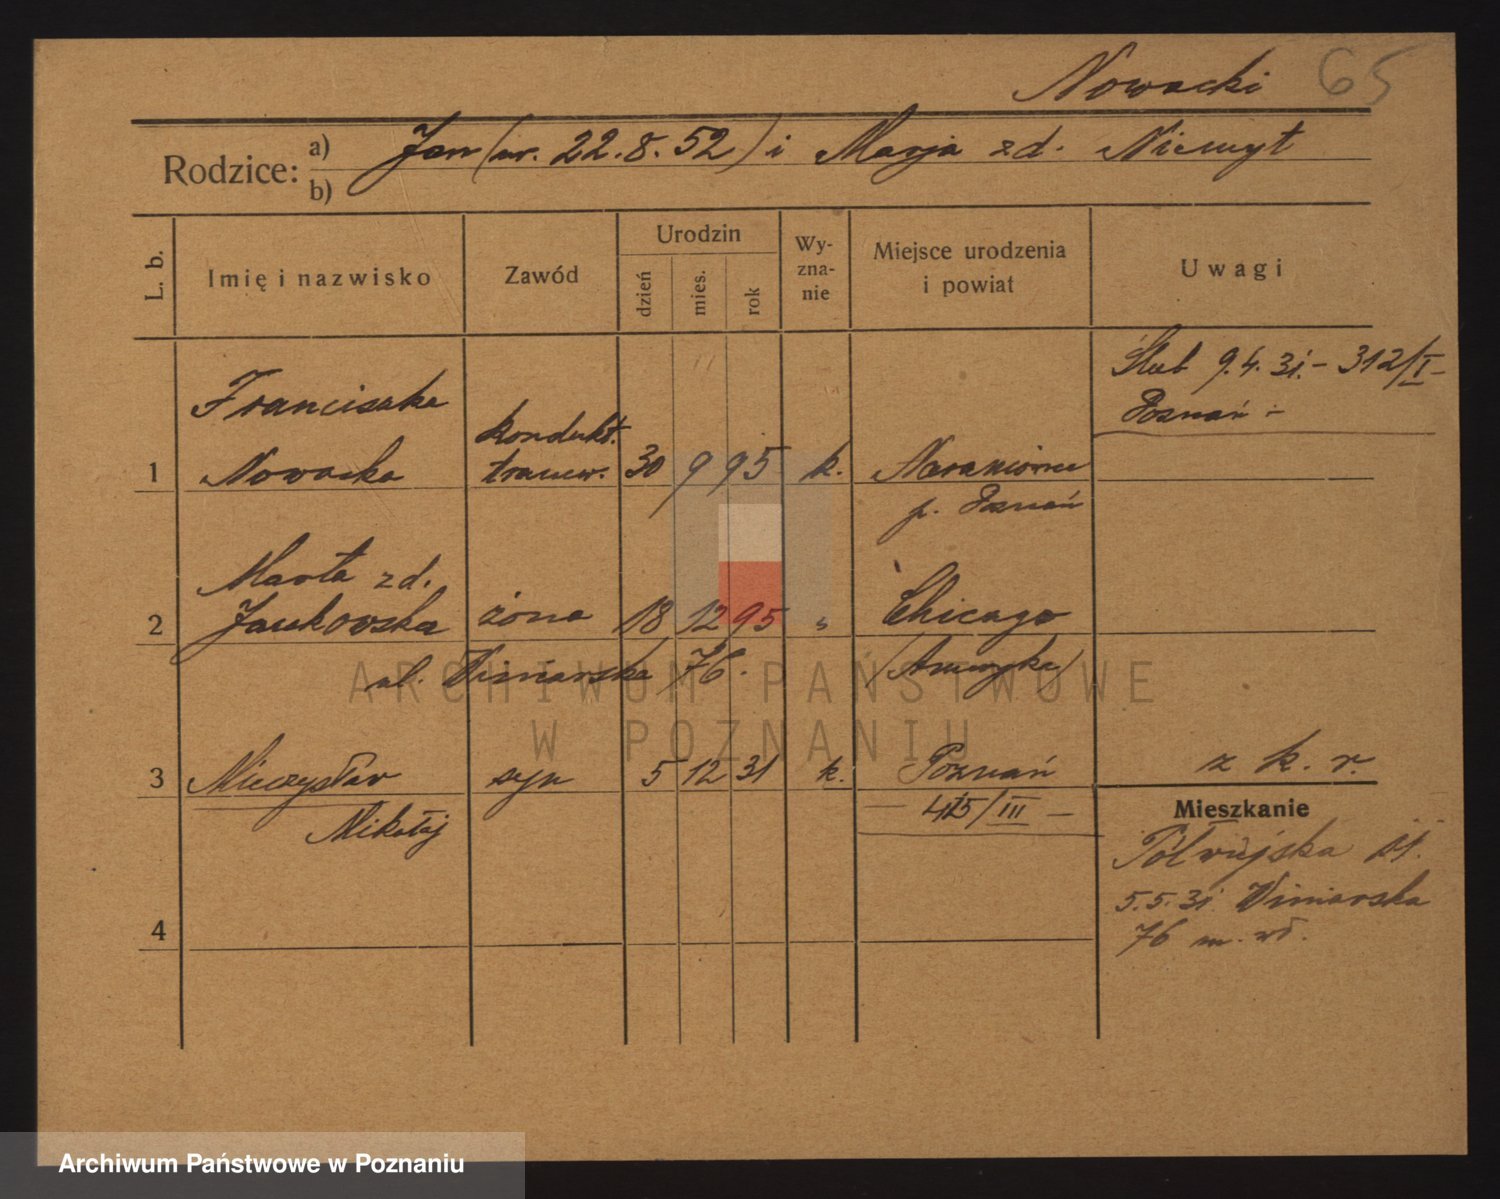 Nowacki 65
Rodzice: a) Jan (ur. 22.8.52) i Marja zd. Niemyt
b)
L. b.
Imię i nazwisko
Zawód
Urodzin
dzień
mies.
rok
Wy-
zna-
nie
Miejsce urodzenia
i powiat
Uwagi
Ślub 9.4.31. – 312/I –
Poznań –
Franciszka
kondukt.
1 Nowacka tramw. 30 9 95 k.
p. Poznań
Marta zd.
2 Jankowska żona 18 12 95 „ Chicago
ul. Winiarska 76. (Ameryka)
ARCHIWUM PAŃSTWOWE
W POZNANIU
3 Mieczysław syn 5 12 31 k. Poznań z k. r.
Mikołaj
– 415/III –
Mieszkanie
Półwiejska
5.5.31 Winiarska
76 m.
4
Archiwum Państwowe w Poznaniu